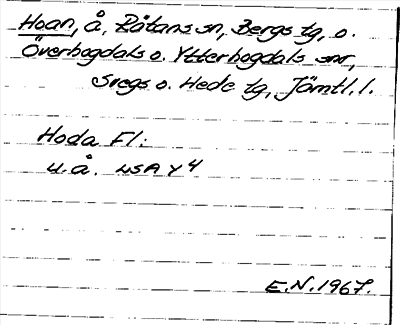 Hoan, å, Råtans sn, Bergs tg, o.
Överhogdals o. Ytterhogdals snr,
Svegs o. Hede tg, Jämtl. l.
Hoda Fl:
u.å. LSA Y 4
E.N. 1967.